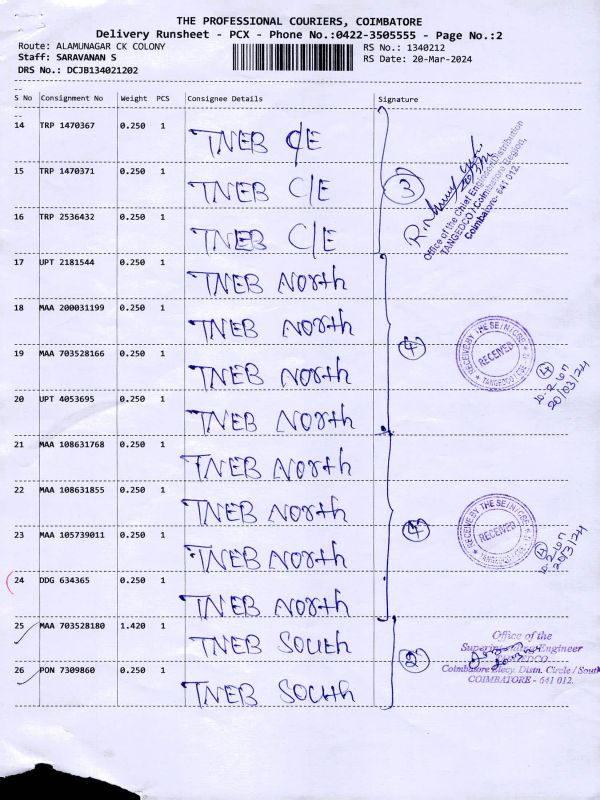 THE PROFESSIONAL COURIERS, COIMBATORE
Delivery Runsheet - PCX - Phone No.:0422-3505555 - Page No.:2
Route: ALAMUNAGAR CK COLONY RS No.: 1340212
Staff: SARAVANAN S RS Date: 20-Mar-2024
DRS No.: DCJB134021202
S No Consignment No Weight PCS Consignee Details Signature
14 TRP 1470367 0.250 1 TNEB C/E
15 TRP 1470371 0.250 1 TNEB C/E 3
16 TRP 2536432 0.250 1 TNEB C/E
Office of the Chief Engineer/Distribution
TANGEDCO / Coimbatore Region,
Coimbatore- 641 012.
17 UPT 2181544 0.250 1 TNEB North
18 MAA 200031199 0.250 1 TNEB North
19 MAA 703528166 0.250 1 TNEB North 4
20 UPT 4053695 0.250 1 TNEB North
RECEIVE BY THE SE/N/CBE
RECEIVED
TANGEDCO
4
20/03/24
21 MAA 108631768 0.250 1 TNEB North
22 MAA 108631855 0.250 1 TNEB North
23 MAA 105739011 0.250 1 TNEB North 4
24 DDG 634365 0.250 1 TNEB North
RECEIVE BY THE SE/N/CBE
RECEIVED
TANGEDCO
4
20/3/24
25 MAA 703528180 1.420 1 TNEB South
26 PON 7309860 0.250 1 TNEB South 2
Office of the
Superintending Engineer
TANGEDCO
Coimbatore Elecy. Distn. Circle / South
COIMBATORE - 641 012.